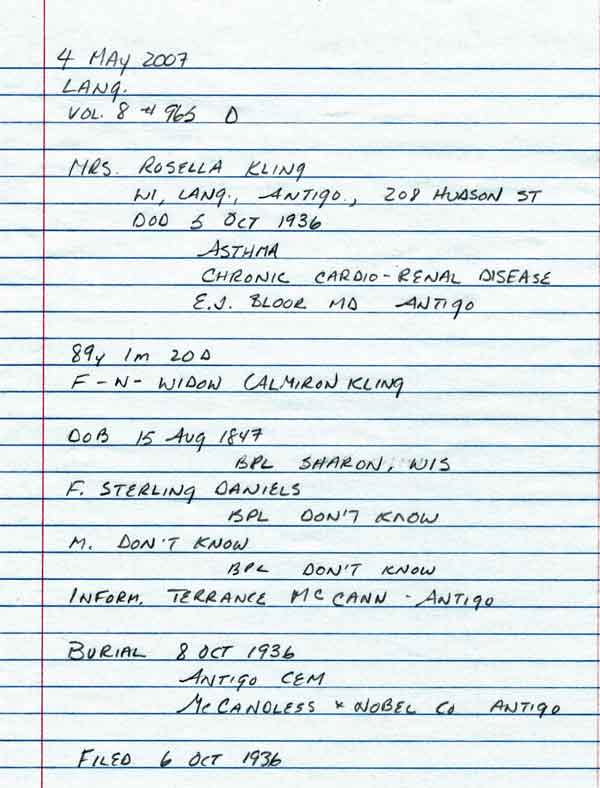 4 MAY 2007
LANG.
VOL. 8 # 965 D
MRS. ROSELLA KLING
WI, LANG., ANTIGO., 208 HUDSON ST
DOD 5 OCT 1936
ASTHMA
CHRONIC CARDIO-RENAL DISEASE
E.J. BLOOR MD ANTIGO
89y 1m 20D
F - N - WIDOW (ALMIRON KLING
DOB 15 AUG 1847
BPL SHARON, WIS
F. STERLING DANIELS
BPL DON'T KNOW
M. DON'T KNOW
BPL DON'T KNOW
INFORM. TERRANCE MCCANN - ANTIGO
BURIAL 8 OCT 1936
ANTIGO CEM
MCCANDLESS & NOBEL CO ANTIGO
FILED 6 OCT 1936